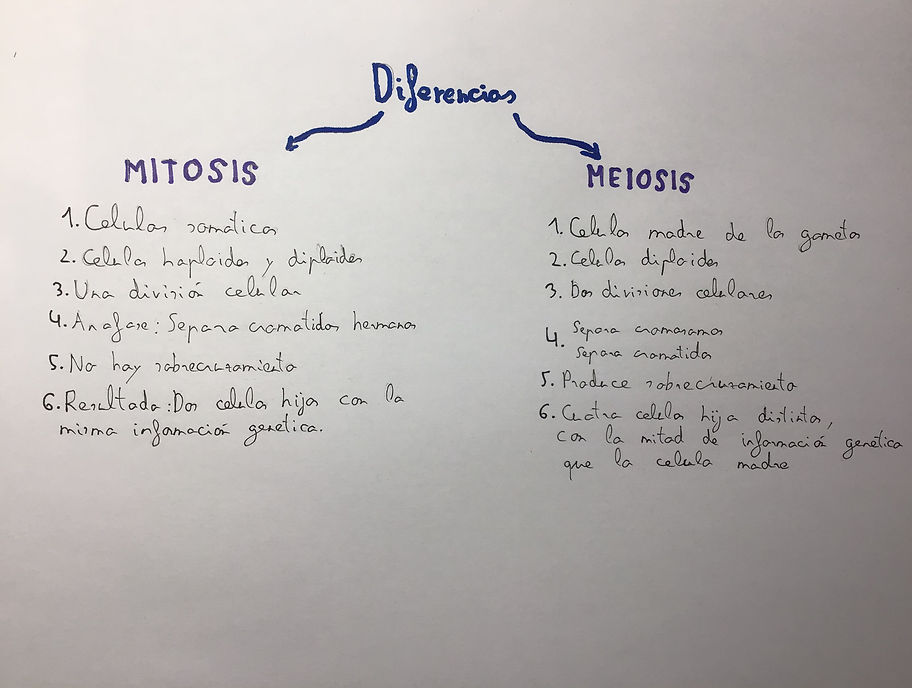 Diferencias
MITOSIS
1. Celulas somáticas
2. Celulas haploides y diploides
3. Una división celular
4. Anafase: Separa cromatidas hermanas
5. No hay sobrecruzamiento
6. Resultado: Dos celulas hijas con la
misma información genética.
MEIOSIS
1. Celulas madre de los gametos
2. Celulas diploides
3. Dos divisiones celulares
4. Separa cromosomas
Separa cromatidas
5. Produce sobrecruzamiento
6. Cuatro celulas hija distintas,
con la mitad de información genética
que la celula madre